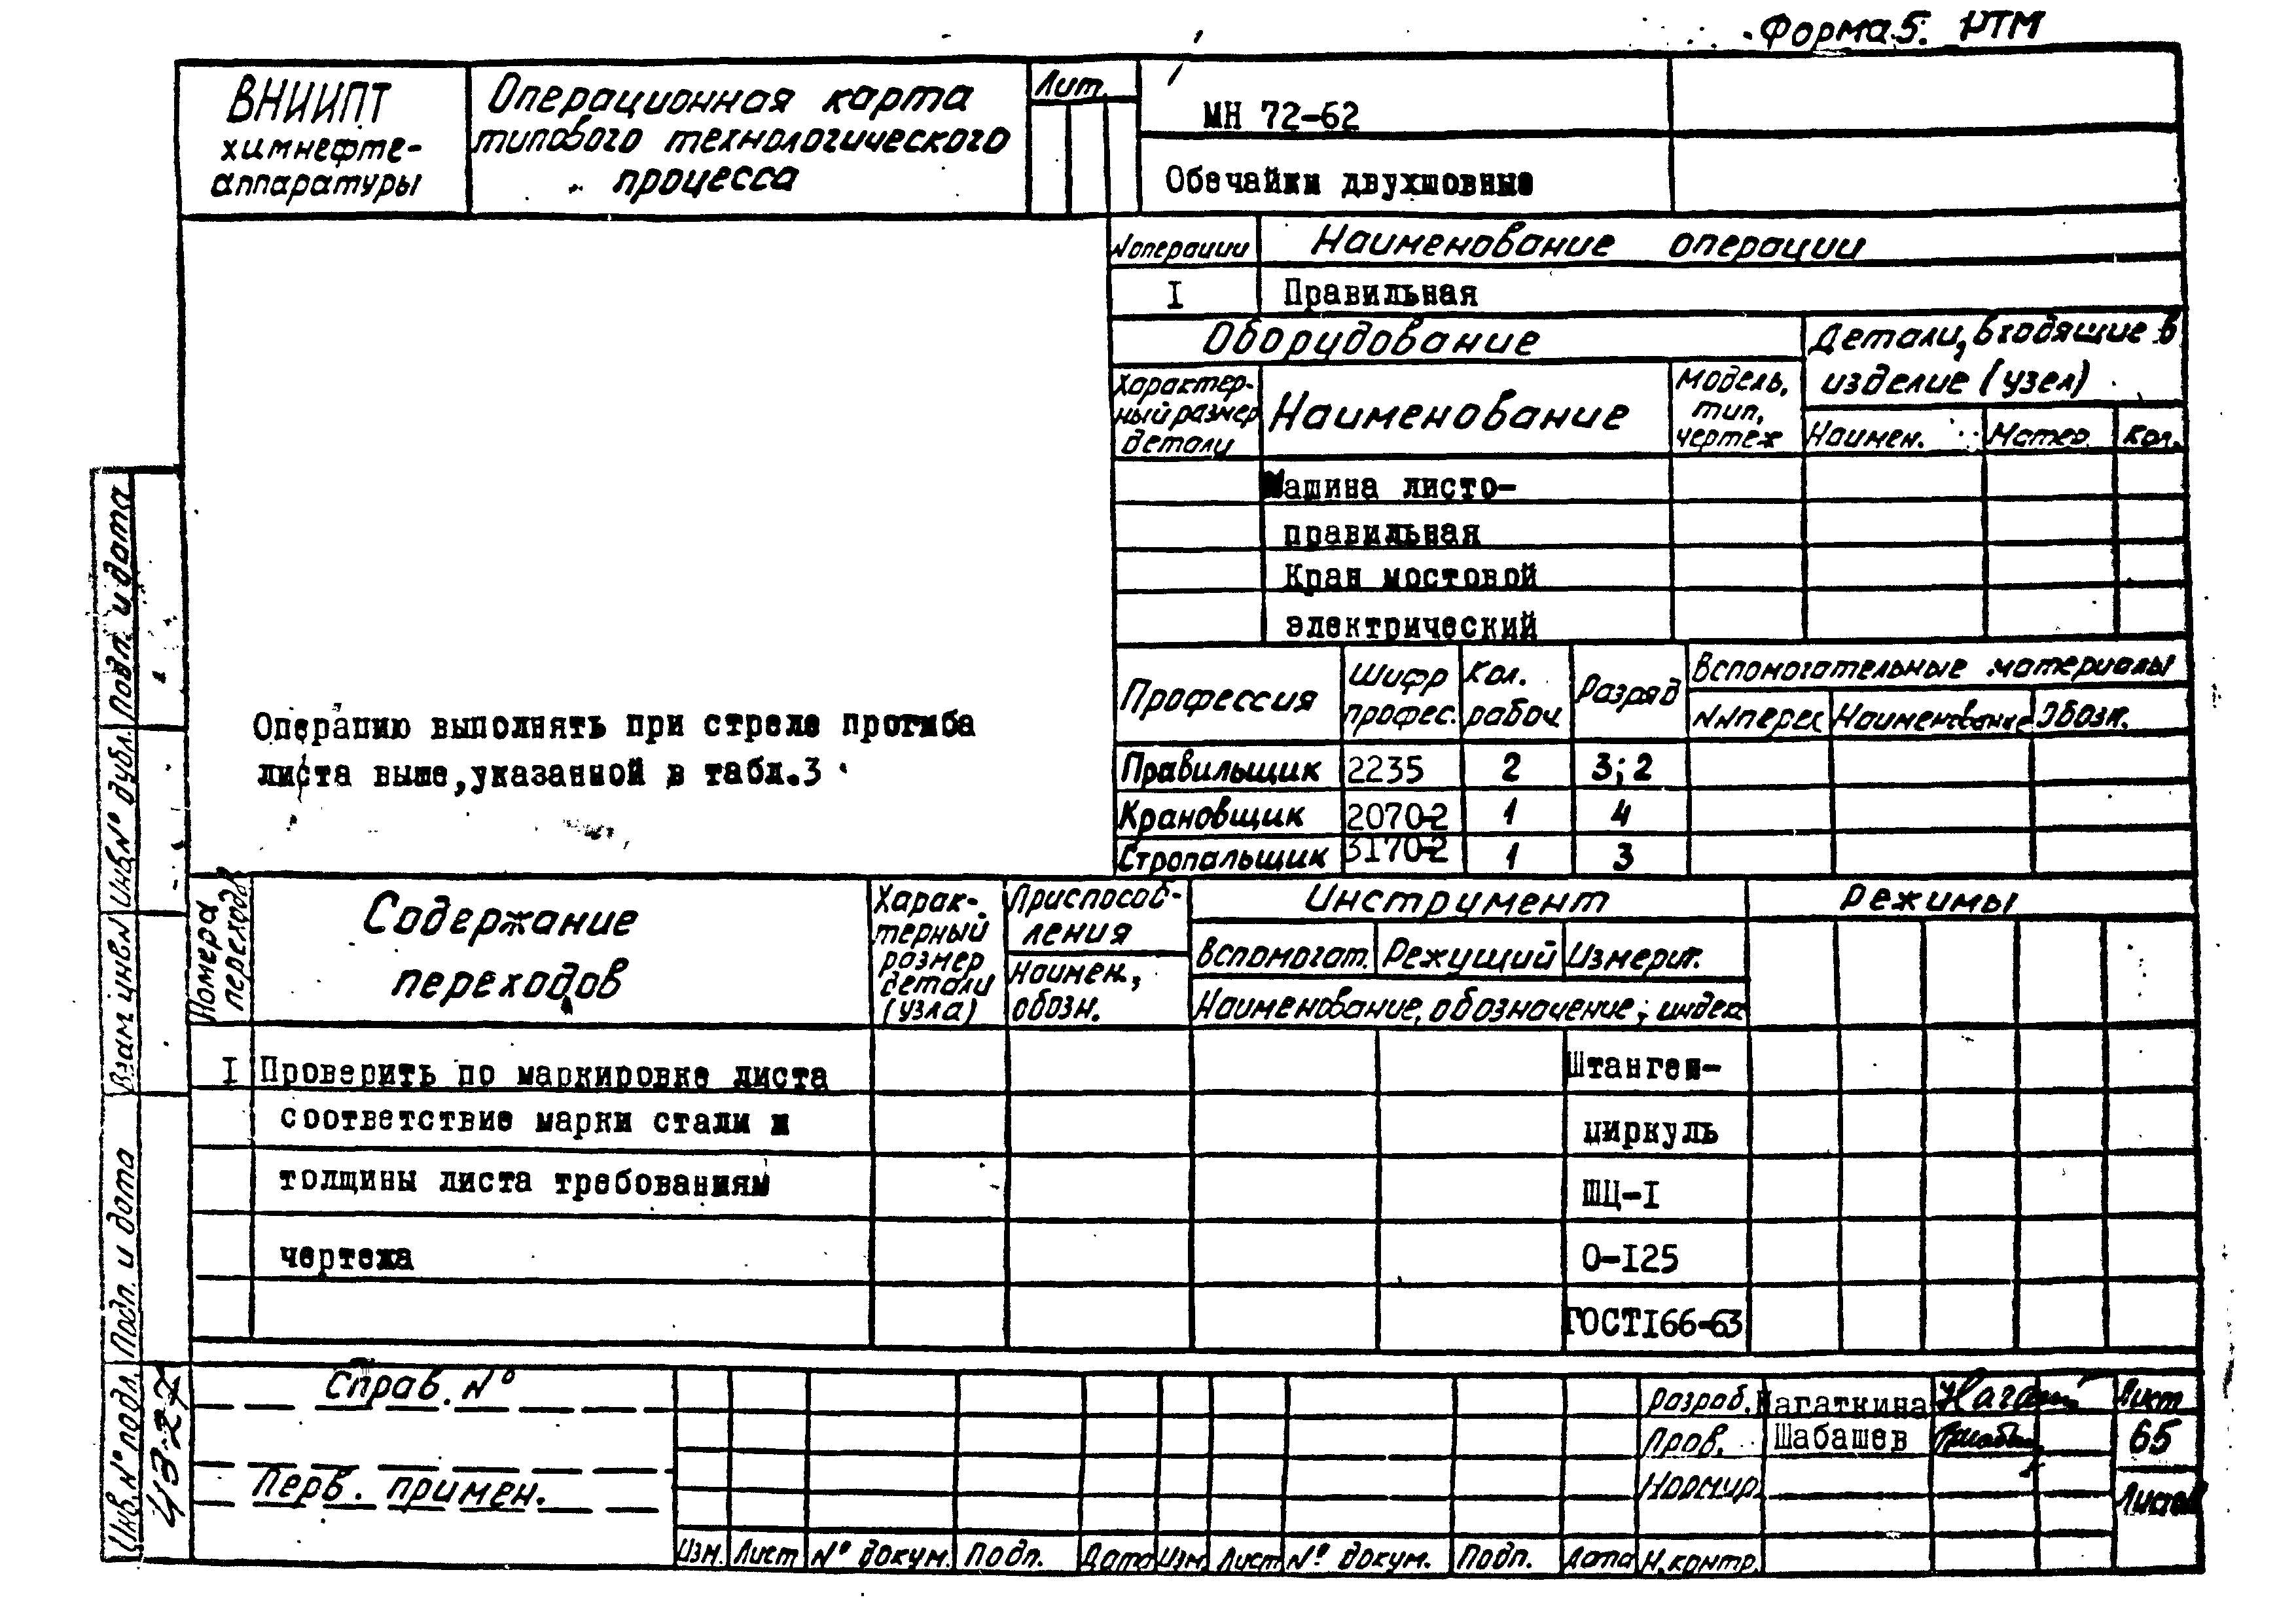 Форма 5. РТМ
ВНИИПТ
химнефте-
аппаратуры
Операционная карта
типового технологического
процесса
Лит.
МН 72-62
Обечайки двухшовные
N операции
Наименование операции
I
Правильная
Оборудование
Детали, входящие в
изделие (узел)
Характер-
ный размер
детали
Наименование
Модель,
тип,
чертеж
Наимен.
Матер.
Кол.
Машина листо-
правильная
Кран мостовой
электрический
Профессия
Шифр
профес.
Кол.
рабоч
Разряд
Вспомогательные материалы
NN перех
Наименование
Обозн.
Правильщик 2235 2 3; 2
Крановщик 2070-2 1 4
Стропальщик 3170-2 1 3
Операцию выполнять при стреле прогиба
листа выше,указанной в табл.3
Номера
переходов
Содержание
переходов
Харак-
терный
размер
детали
(узла)
Приспособ-
ления
Наимен.,
обозн.
Инструмент
Вспомогат.
Режущий
Измерит.
Наименование, обозначение, индекс
Режимы
I Проверить по маркировке листа
соответствие марки стали и
толщины листа требованиям
чертежа
Штанген-
циркуль
ШЦ-I
0-I25
ГОСТI66-63
Справ. N°
Перв. примен.
Изм. Лист N° докум. Подп. Дата Изм. Лист N° докум. Подп. Дата
Разраб. Нагаткина
Пров. Шабашев
Нормир.
Н.контр.
Лист
65
Листов
Подп. и дата
Инв.N° дубл.
Взам. инв.N
Подп. и дата
Инв.N° подл.
4327